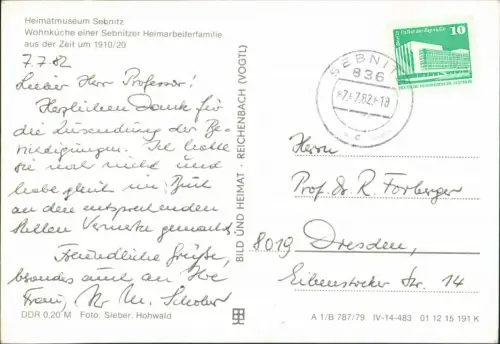 Heimatmuseum Sebnitz
Wohnküche einer Sebnitzer Heimarbeiterfamilie
aus der Zeit um 1910/20
7.7.82
Lieber Herr Professor!
Herzlichen Dank für
die Zusendung der Be-
richtigungen. Ich hatte
sie noch nicht und
habe gleich im Buch
an den entsprechenden
Stellen Vermerke gemacht.
Freundliche Grüße,
besonders auch an Ihre
Frau, Ihr M. Schober
DDR 0,20 M Foto: Sieber, Hohwald
BILD UND HEIMAT · REICHENBACH (VOGTL)
SEBNITZ
836
-7.-7.82-18
c
10
Herrn
Prof. Dr. R. Forberger
8019 Dresden,
Eibenstocker Str. 14
A 1/B 787/79 IV-14-483 01 12 15 191 K